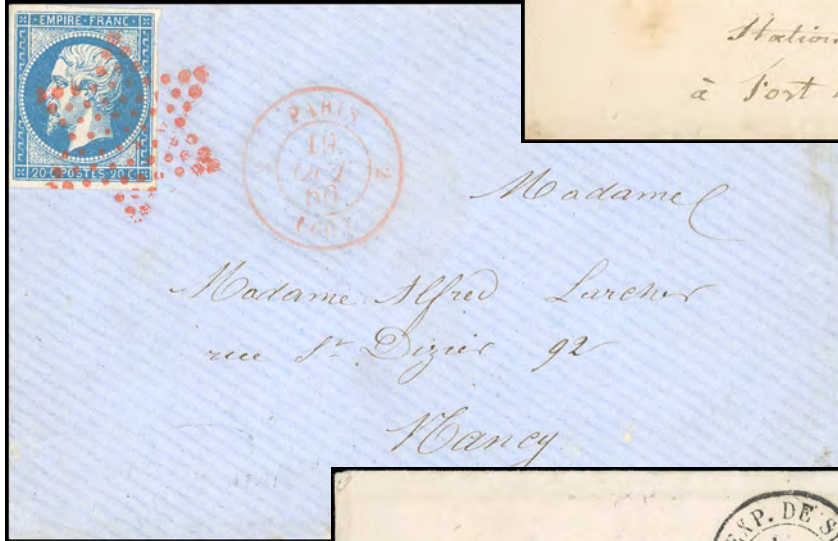 EMPIRE FRANC
20 C POSTES 20 C
PARIS
2 2
19
OCT
60
(60)
Station
à Fort
Madame
Madame Alfred Larcher
rue St. Dizier 92
Nancy
EXP. DE S